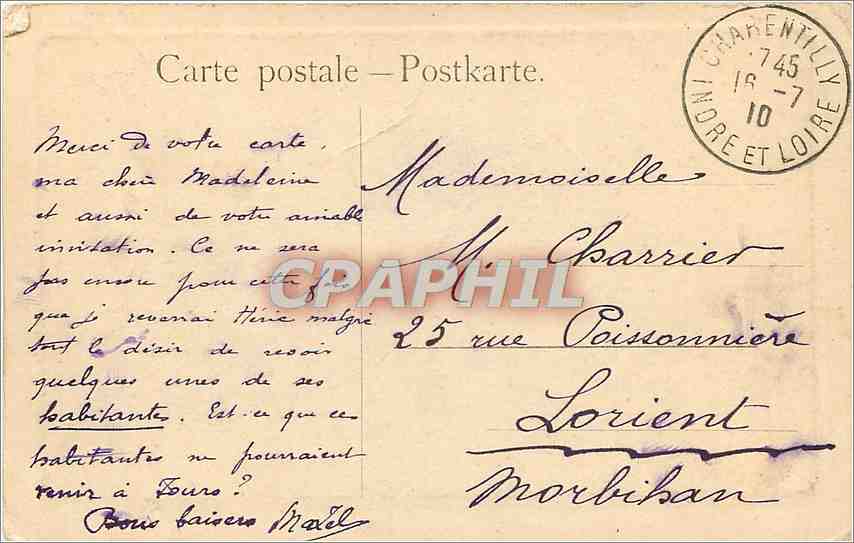 Carte postale — Postkarte.
CHARENTILLY
7 45
16 -7
10
INDRE ET LOIRE
Merci de votre carte,
ma chère Madeleine
et aussi de votre aimable
invitation. Ce ne sera
pas encore pour cette fois
que je reverrai malgré
tout le désir de revoir
quelques unes de ses
habitantes. Est-ce que ces
habitantes ne pourraient
venir à Tours?
Bons baisers
Mademoiselle
M. Charrier
25 rue Poissonnière
Lorient
Morbihan
CPAPHIL